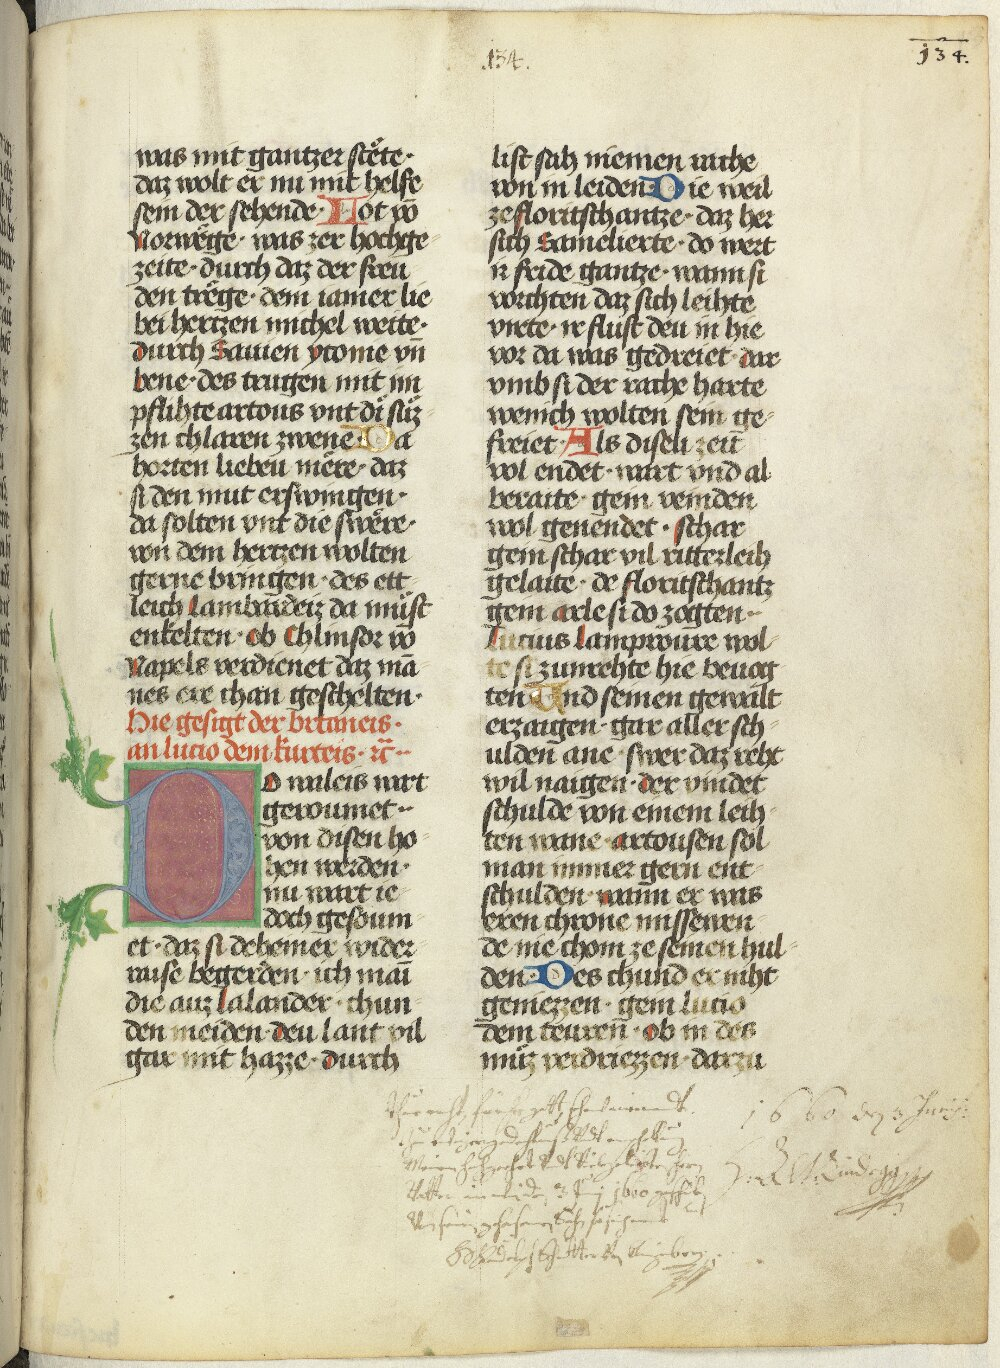 .134.
134.
was mit gantzer stëte·
daz wolt er nu mit helfe
sein der sehende· Not vō
Norwëge· was zer hochge
zeite· durch daz der freu
den trëge· dem iamer lie
bei hertzen michel weite·
durch Sauien ytonie vn̄
bene· des trugen mit im
pflihte artous vnt di süz
zen chlaren zwene· Da
horten lieben mëre· daz
si den mut erswingen·
da solten vnt die swëre·
von dem hertzen wolten
gerne bringen· des ett
leich Lambardeiz da müst
enkelten· ob Chlinsor vō
Napels verdienet daz mā
nes ere chan geschelten·
Hie gesigt der britaneis·
an lucio dem kurteis· ꝛc̄··
O willeis wart
geroumet··
von disen ho
hen werden·
nu wart ie
doch gesoum
et· daz si deheiner wider
raise begerden· ich main̄
die auz Lalander· chun
den meiden· deu lant vil
gar mit hazze· durch
list sah niemen rache
von in leiden· Die weil
ze floritschantze· daz her
sich Samelierte· do wert
ir fride gantze· wann si
vorchten daz sich leihte
virte· ir flust deu in hie
vor da was gedreiet· dar
vmb si der rache harte
wenich wolten sein ge
freiet· Als diseu zeit
vol endet· wart vnd al
beraite· gein veinden
wol genendet· schar
gein schar vil ritterleich
gelaite· de floritschantz
gem arle si do zogten··
Lucius lamproure wol
te si zunrehte hie beuog
ten· Und seinen gewalt
erzaigen· gar aller sch
ulden ane· swer daz reht
wil naigen· der vindet
schulde von einem leih
ten wane· artousen sol
man immer gern ent
schulden· wann er was
eren chrone missewen
de nie chom ze seinen hul
den· Des chund er niht
geniezzen· gem lucio
dem teuren· ob in des
müz verdriezzen· darzu
1660 den 3 Junij